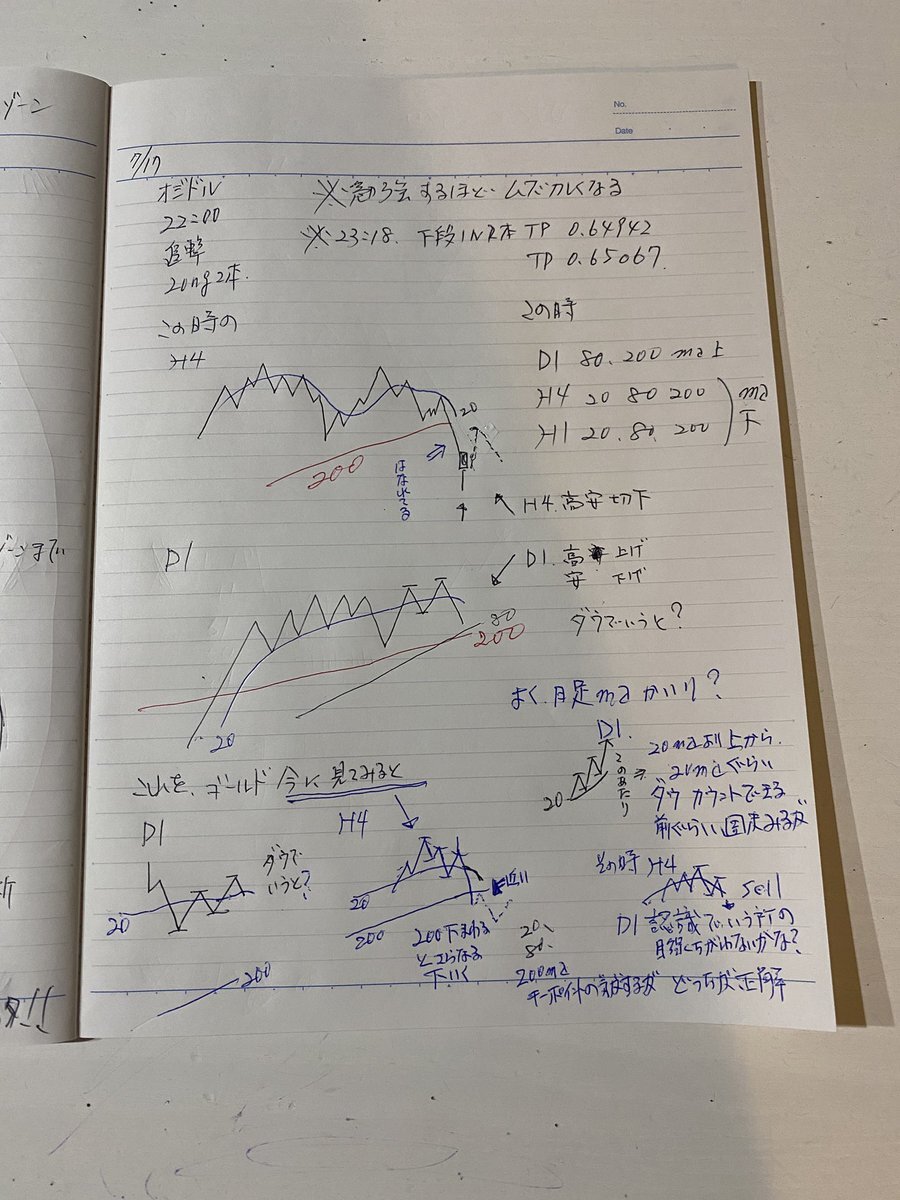 ゾーン
No.
Date
7/17
オジドル
22:00
追撃
20mg2本.
この時の
H4
※勉強するほど…ムズカしくなる
※23:18. 下段IN2本 TP 0.64942
TP 0.65067.
この時
D1 80.200 ma上
H4 20 80 200
H1 20.80.200
ma
下
20
200
はなれてる
H4.高安切下
D1
D1.高 上げ
安 下げ
ダウでいうと?
80
200
20
よく.日足maかいり?
D1.
20
このあたり
20maより上から.
20maぐらい
ダウカウントできる
前ぐらい
これを.ゴールド今に見てみると
D1
20
ダウで
いうと?
200
H4
20
200
近い
200下まわる
とさらなる
下いく
その時 H4
sell
D1認識でいう所の
目線くちがわないかな?
20、
80、
200ma
キーポイントの気がするが どっちが正解